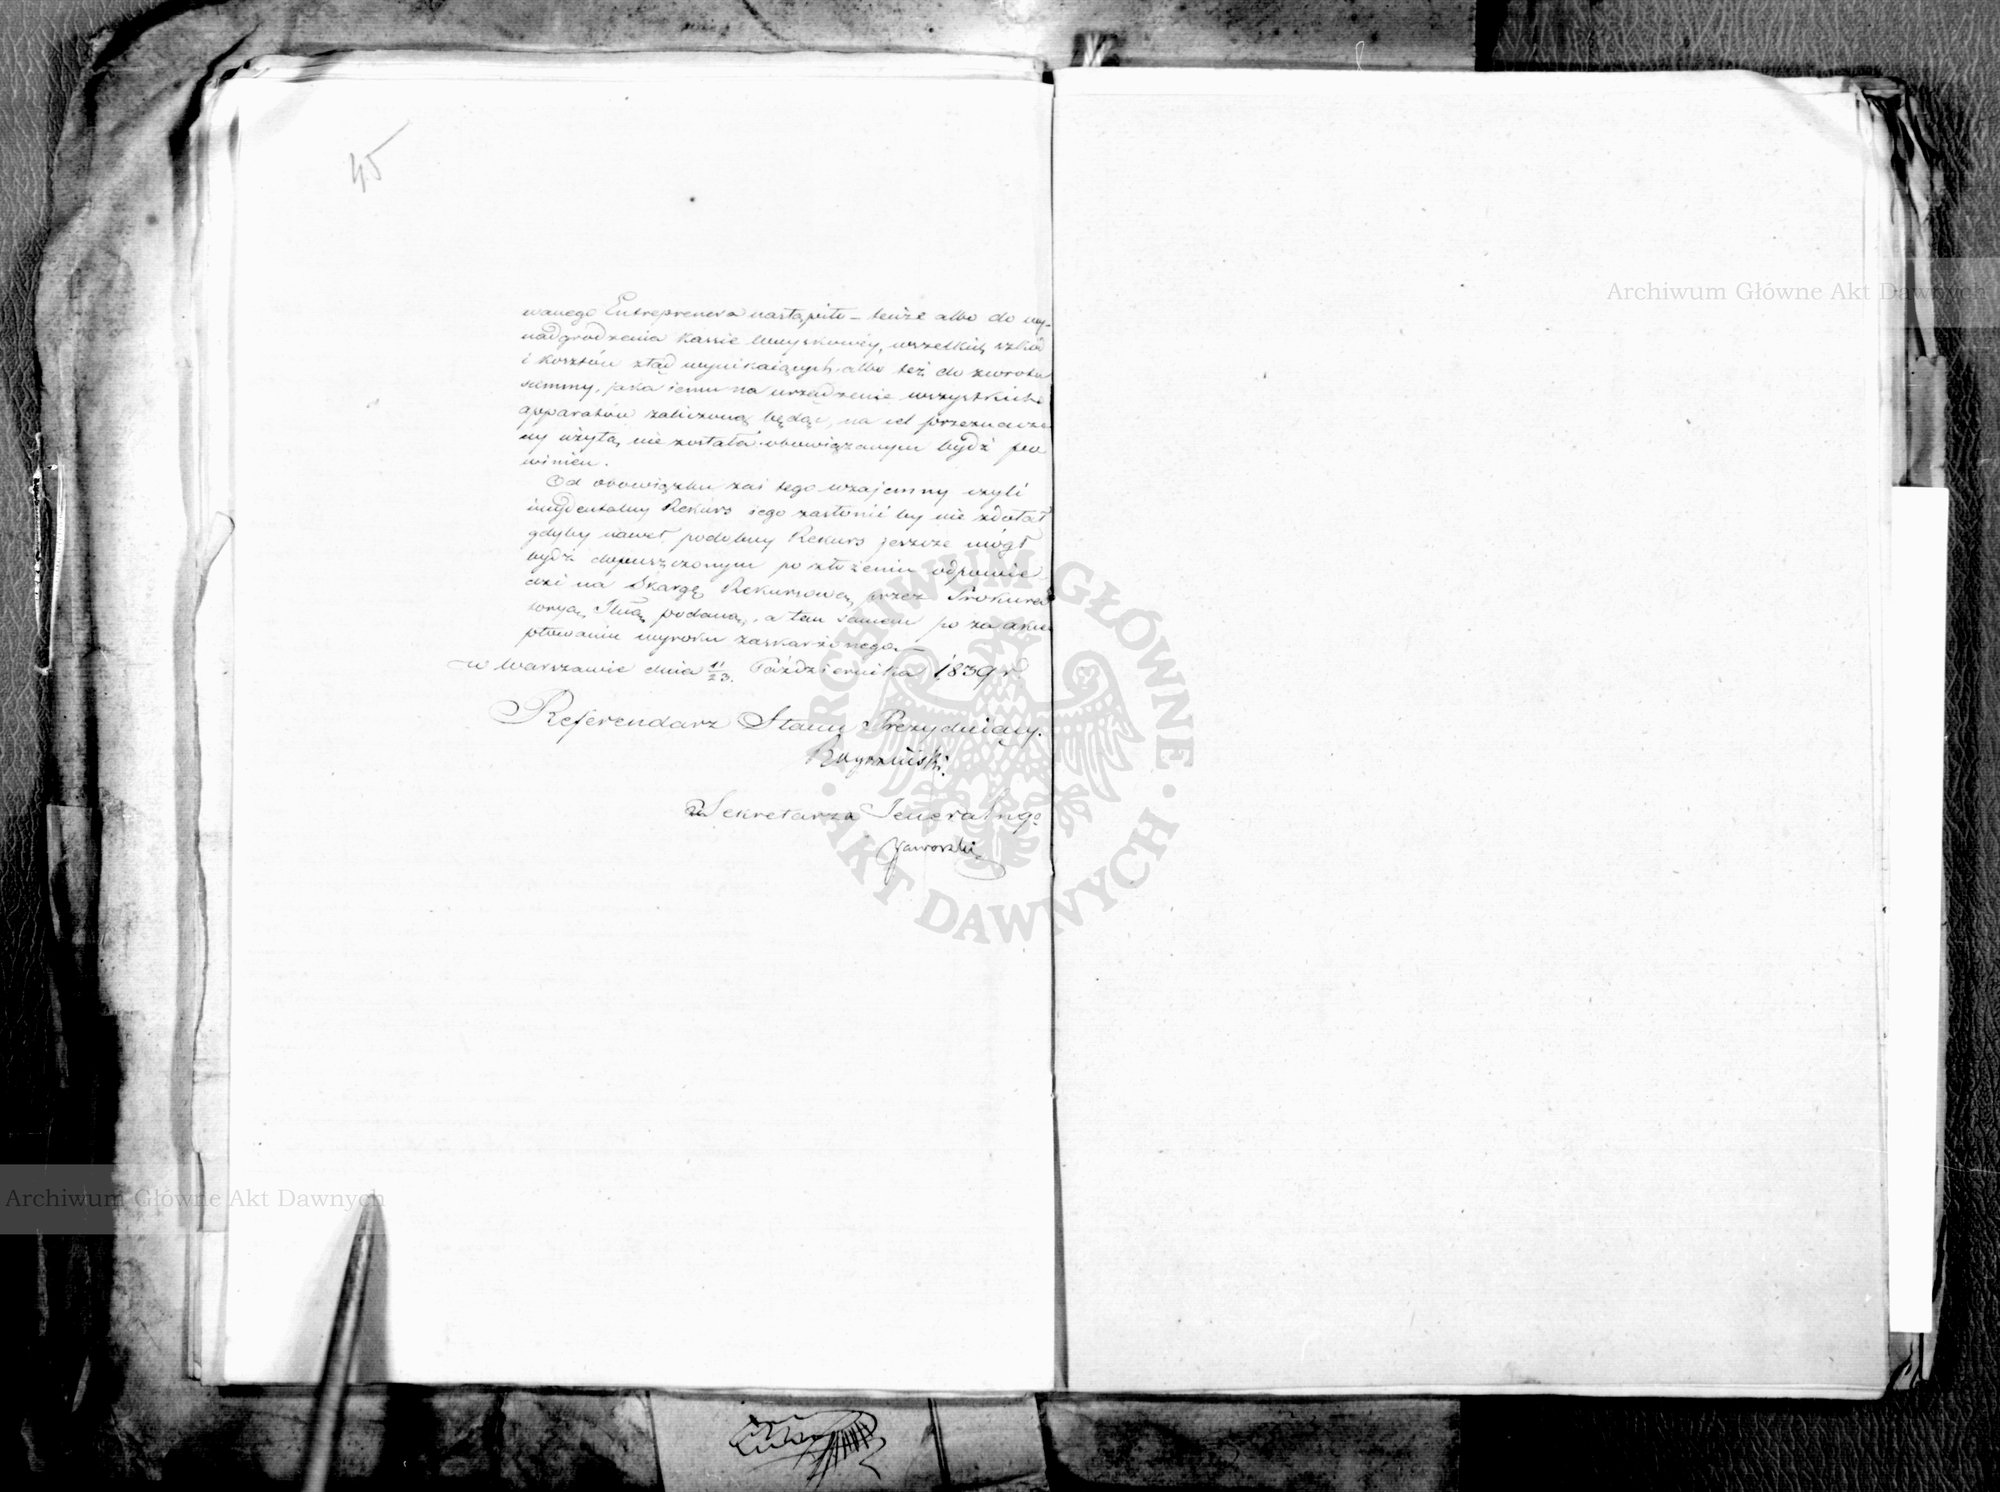 45
wanego Entreprenera nastąpiło – tenże albo do wy-
nadgrodzenia Kassie wszelkich szkód
i kosztów ztąd wynikaiących albo też do zwrotu
summy, jaka iemu na urządzenie wszystkich
apparatów zaliczoną będąc, na cel przeznaczo
ny użytą nie została obowiązanym bydź po
winien.
Od obowiązku zaś tego wzajemny czyli
incydentalny Rekurs iego zasłonić by nie zdołał
gdyby nawet podobny Rekurs jeszcze mógł
bydź dopuszczonym po złożeniu odpowie
dzi na Skargę Rekursową, przez Prokura
toryą podaną, a tem samem po zaakce
ptowaniu wyroku zaskarżonego. –
w Warszawie dnia 11/23. Października 1839 r.
Referendarz Stanu Prezyduiący.
za Sekretarza Jeneralnego
Jaworski
Archiwum Główne Akt Dawnych
ARCHIWUM GŁÓWNE
AKT DAWNYCH
Archiwum Główne Akt Dawnych